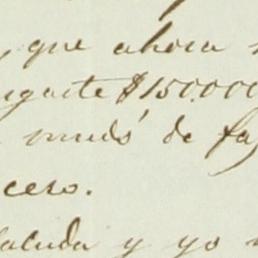 , que ahora
gaste $150.000
mudó de fa
cero.
saluda y yo